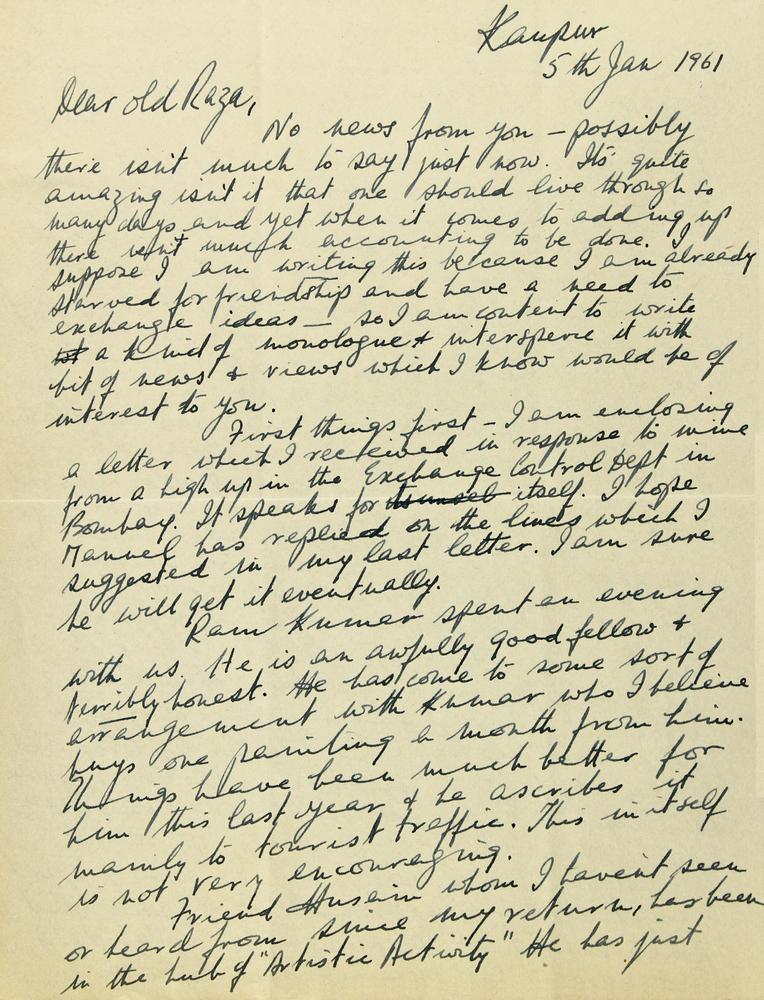 Kanpur
5th Jan 1961
Dear old Raza,
No news from you - possibly
there isn't much to say just now. It's quite
amazing isn't it that one should live through so
many days and yet when it comes to adding up
there isn't much accounting to be done. I
suppose I am writing this because I am already
starved for friendship and have a need to
exchange ideas - so I am content to write
a kind of monologue & intersperse it with
bit of news & views which I know would be of
interest to you.
First things first - I am enclosing
a letter which I received in response to mine
from a high up in the Exchange Control Dept in
Bombay. It speaks for itself. I hope
Manuel has replied on the lines which I
suggested in my last letter. I am sure
he will get it eventually.
Ram Kumar spent an evening
with us. He is an awfully good fellow &
terribly honest. He has come to some sort of
arrangement with Kumar who I believe
buys one painting a month from him.
Things have been much better for
him this last year & he ascribes it
mainly to tourist traffic. This in itself
is not very encouraging.
Friend Husain whom I haven't seen
or heard from since my return, has been
in the hub of "Artistic Activity" He has just